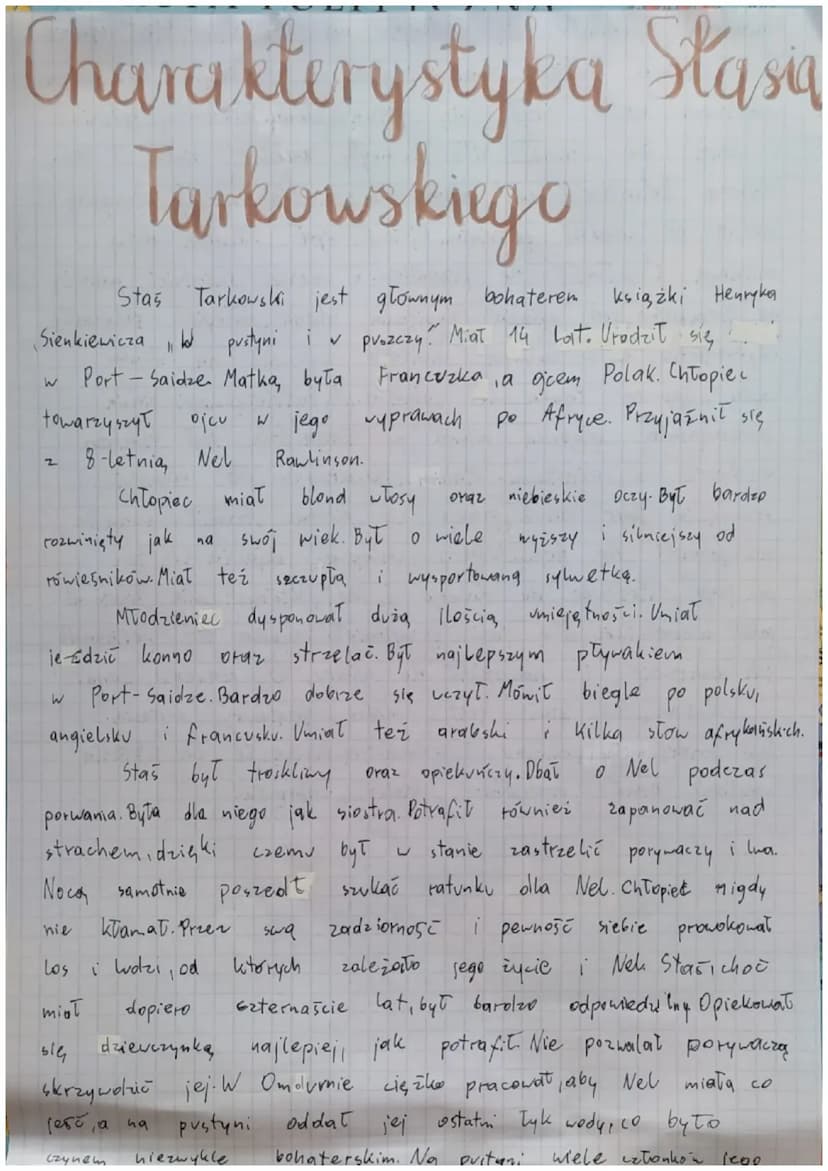 Charakterystyka Stasia
Tarkowskiego
Staś Tarkowski jest głównym bohaterem książki Henryka
Sienkiewicza „W pustyni i w puszczy”. Miał 14 lat. Urodził się
w Port-Saidze. Matką była Francuzka, a ojcem Polak. Chłopiec
towarzyszył ojcu w jego wyprawach po Afryce. Przyjaźnił się
z 8-letnią Nel Rawlinson.
Chłopiec miał blond włosy oraz niebieskie oczy. Był bardzo
rozwinięty jak na swój wiek. Był o wiele wyższy i silniejszy od
rówieśników. Miał też szczupłą i wysportowaną sylwetkę.
Młodzieniec dysponował dużą ilością umiejętności. Umiał
jeździć konno oraz strzelać. Był najlepszym pływakiem
w Port-Saidze. Bardzo dobrze się uczył. Mówił biegle po polsku,
angielsku i francusku. Umiał też arabski i kilka słów afrykańskich.
Staś był troskliwy oraz opiekuńczy. Dbał o Nel podczas
porwania. Była dla niego jak siostra. Potrafił również zapanować nad
strachem, dzięki czemu był w stanie zastrzelić porywaczy i lwa.
Nocą samotnie poszedł szukać ratunku dla Nel. Chłopiec nigdy
nie kłamał. Przez swą zadziorność i pewność siebie prowokował
los i ludzi, od których zależało jego życie i Nel. Staś, choć
miał dopiero czternaście lat, był bardzo odpowiedzialny. Opiekował
się dziewczynką najlepiej, jak potrafił. Nie pozwalał porywaczą
skrzywdzić jej. W Omdurnie ciężko pracował, aby Nel miała co
jeść, a na pustyni oddał jej ostatni łyk wody, co było
czynem niezwykle bohaterskim. Na pustyni wiele członków jego